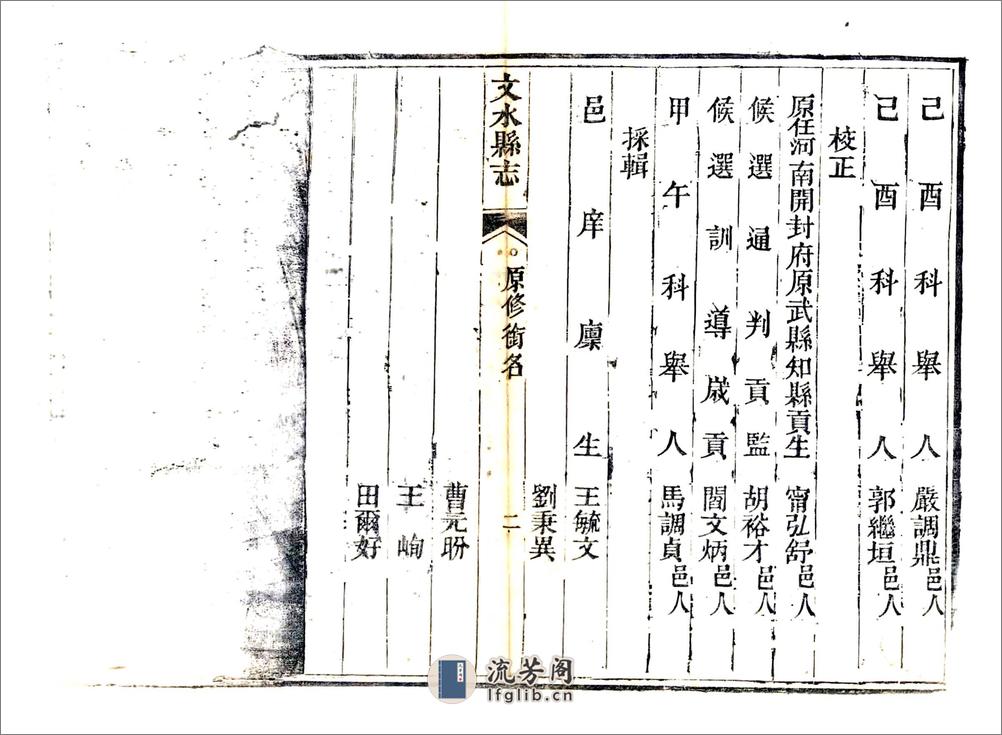 己酉科舉人 嚴調鼎邑人
己酉科舉人 郭繼垣邑人
校正
原任河南開封府原武縣知縣貢生 甯弘舒邑人
候選通判貢監 胡裕才邑人
候選訓導歲貢 閻文炳邑人
甲午科舉人 馬調貞邑人
採輯
邑庠廩生 王毓文
劉秉異
文水縣志 原修銜名 二
曹元盼
王峋
田爾好
流芳阁
lfglib.cn